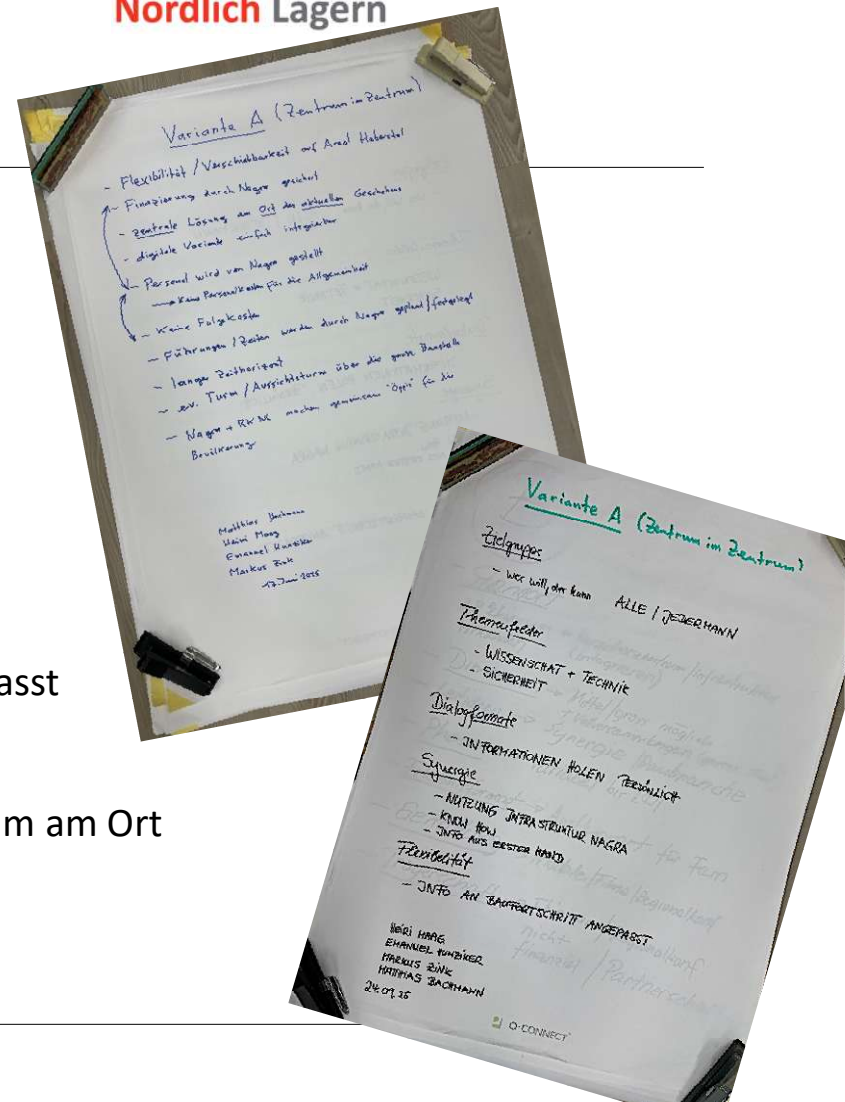 Nördlich Lägern
Variante A (Zentrum im Zentrum)
- Flexibilität / Verschiebbarkeit auf Areal Haberstal
- Finazierung durch Nagra gesichert
- zentrale Lösung am Ort des aktuellen Geschehens
- digitale Variante einfach integrierbar
- Personal wird von Nagra gestellt
→ Keine Personalkosten für die Allgemeinheit
- Keine Folgekosten
- Führungen / Zeiten werden durch Nagra geplant / festgelegt
- langer Zeithorizont
- ev. Turm / Aussichtsturm über die grosse Baustelle
- Nagra + RK NL machen gemeinsam "öppis" für die
Bevölkerung
Matthias Bachmann
Heiri Maag
Emanuel Hunziker
Markus Zink
17. Juni 2025
asst
m am Ort
Variante A (Zentrum im Zentrum)
Zielgruppe
- wer will, der kann ALLE / JEDERMANN
Themenfelder
- WISSENSCHAT + TECHNIK
- SICHERHEIT
Dialogformate
- INFORMATIONEN HOLEN PERSÖNLICH
Synergie
- NUTZUNG INFRASTRUKTUR NAGRA
- KNOW HOW
- INFO AUS ERSTER HAND
Flexibilität
- INFO AN BAUFORTSCHRITT ANGEPASST
HEIRI MAAG
EMANUEL HUNZIKER
MARKUS ZINK
MATTHIAS BACHMANN
24.09.25
Q-CONNECT